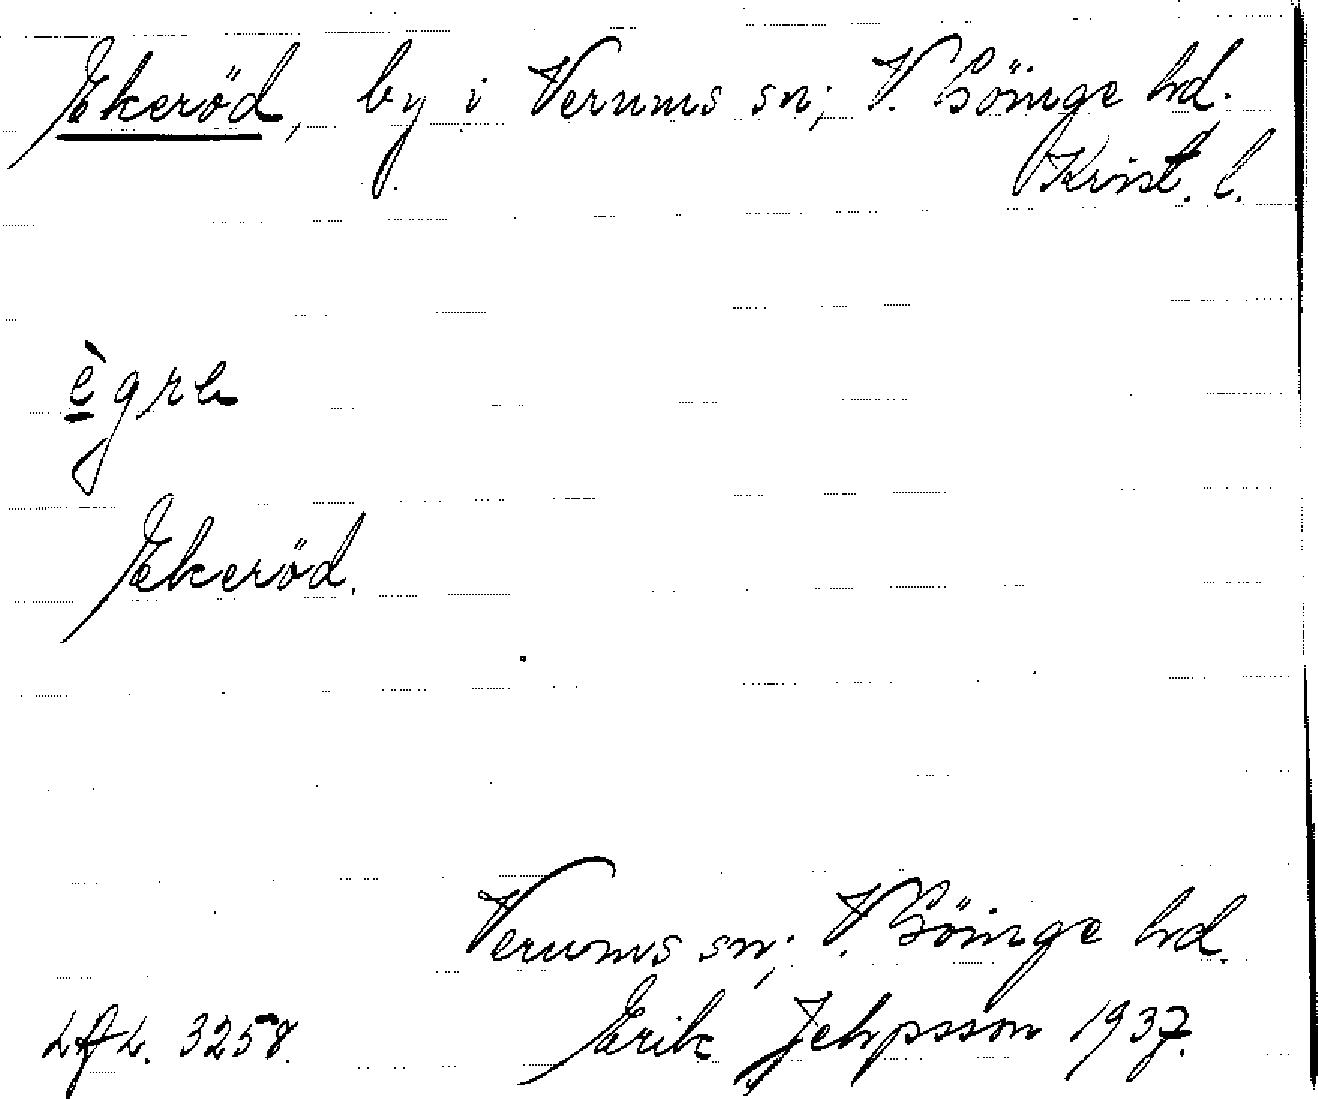 Ekeröd, by i Verums sn; V. Göinge hd.
Krist. l.
ègre
Ekeröd.
Verums sn; V. Göinge hd.
LAL. 3258. Erik Jeppsson 1937.